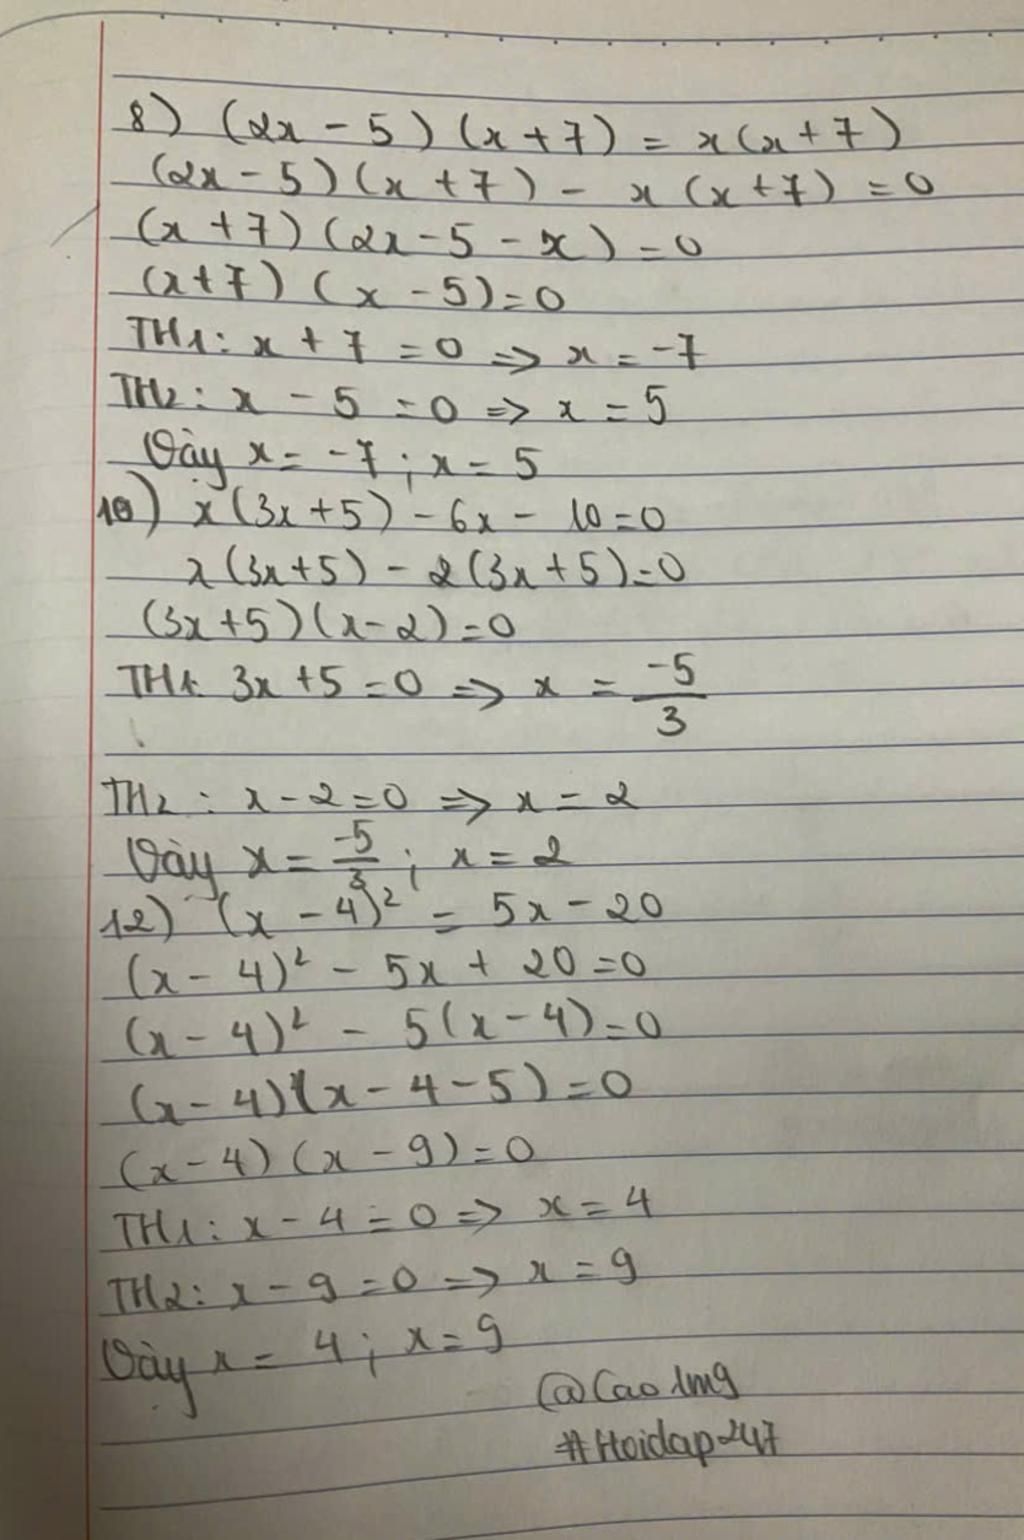 8) (2x - 5) (x + 7) = x(x + 7)
(2x - 5) (x + 7) - x (x + 7) = 0
(x + 7) (2x - 5 - x) = 0
(x + 7) (x - 5) = 0
TH1: x + 7 = 0 => x = -7
TH2: x - 5 = 0 => x = 5
Vậy x = -7 ; x = 5
10) x(3x + 5) - 6x - 10 = 0
x(3x + 5) - 2(3x + 5) = 0
(3x + 5)(x - 2) = 0
TH1: 3x + 5 = 0 => x = -5/3
TH2 : x - 2 = 0 => x = 2
Vậy x = -5/3 ; x = 2
12) (x - 4)² = 5x - 20
(x - 4)² - 5x + 20 = 0
(x - 4)² - 5(x - 4) = 0
(x - 4)(x - 4 - 5) = 0
(x - 4) (x - 9) = 0
TH1: x - 4 = 0 => x = 4
TH2: x - 9 = 0 => x = 9
Vậy x = 4 ; x = 9
@Cao1mg
#Hoidap247